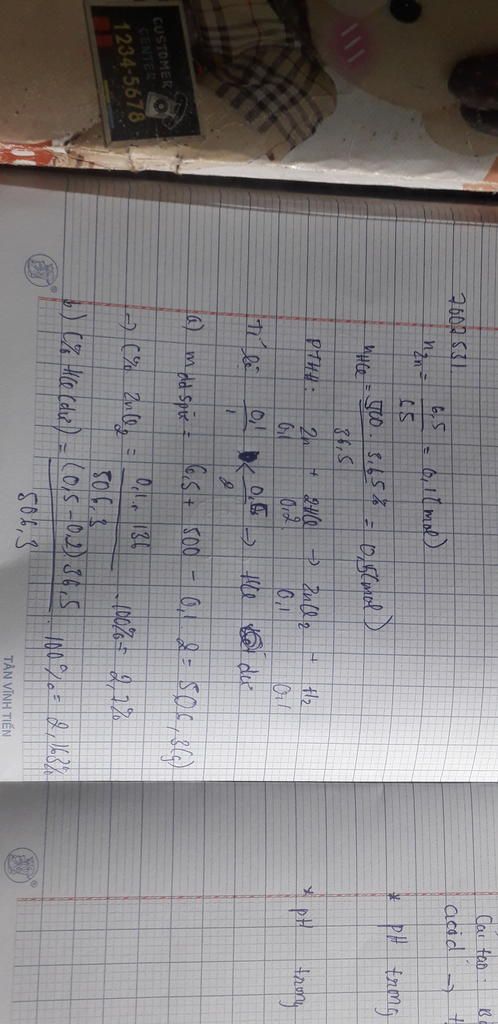 CUSTOMER
CENTER
1234-5678
7602531
n Zn = 6,5 / 65 = 0,1 (mol)
n HCl = 500 . 3,65% / 36,5 = 0,5 (mol)
PTHH: Zn + 2HCl → ZnCl2 + H2
0,1 0,2 0,1 0,1
Tỉ lệ 0,1 / 1 < 0,5 / 2 → HCl dư
a) m dd spứ = 6,5 + 500 - 0,1 . 2 = 506,3 (g)
→ C% ZnCl2 = 0,1 . 136 / 506,3 . 100% = 2,7%
b) C% HCl (dư) = (0,5 - 0,2) 36,5 / 506,3 . 100% = 2,163%
TÂN VĨNH TIẾN
Cấu tạo:
acid →
* pH trong
* pH trong